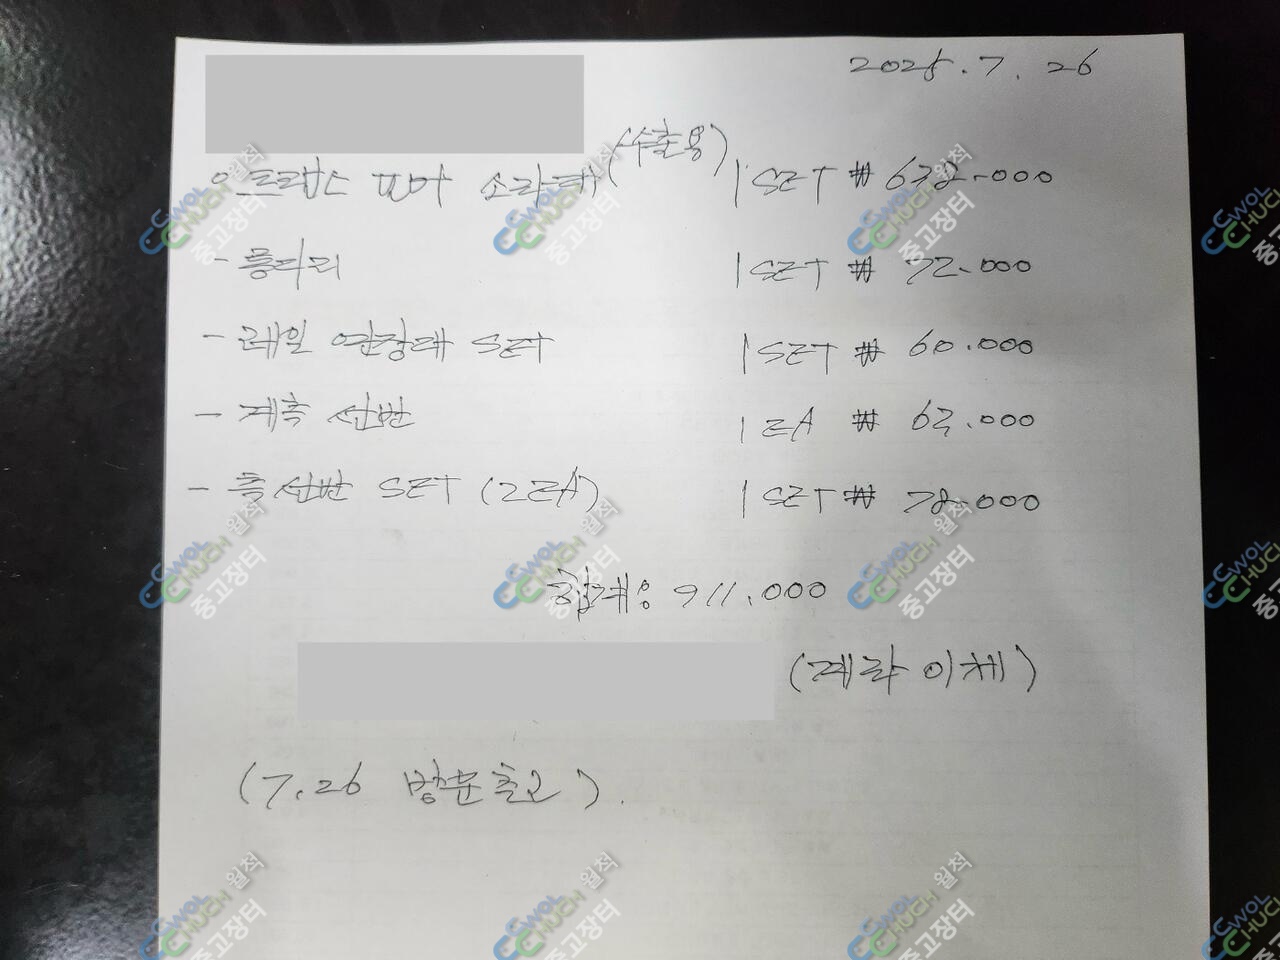 2025.7.26
(수출용)
1 SET ₩ 638.000
- 롱다리 1 SET ₩ 72.000
- 레일 연장대 SET 1 SET ₩ 60.000
- 계측 선반 1 EA ₩ 63.000
- 측 선반 SET (2EA) 1 SET ₩ 78.000
합계: 911.000
(계좌 이체)
(7.26 방문출고).
CWOL CHUCH 월척 중고장터